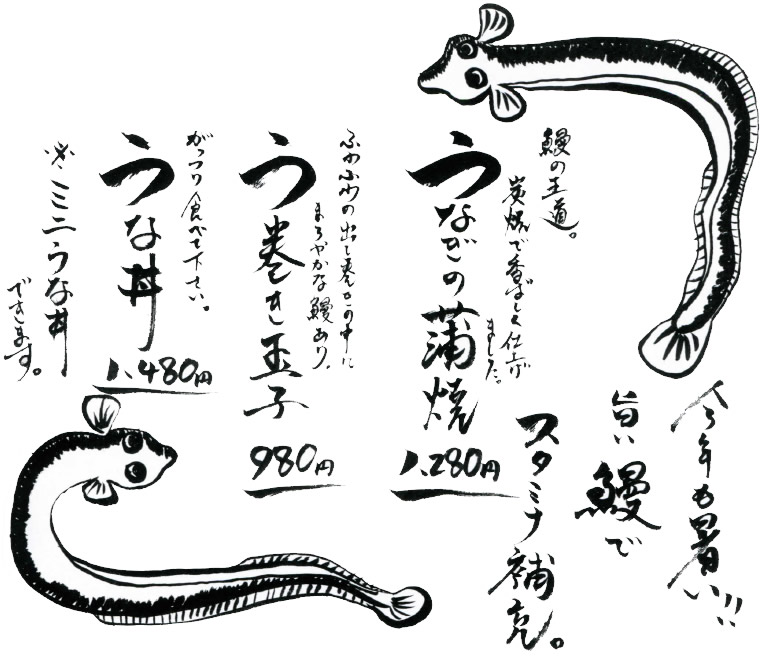 今年も暑い!!
旨い鰻で
スタミナ補充。
鰻の王道。
炭焼で香ばしく仕上げ
ました。
うなぎの蒲焼
1,280円
ふわふわの出し巻きの中に
まろやかな鰻あり。
う巻き玉子
980円
がっつり食べて下さい。
うな丼
1,480円
※ミニうな丼
できます。